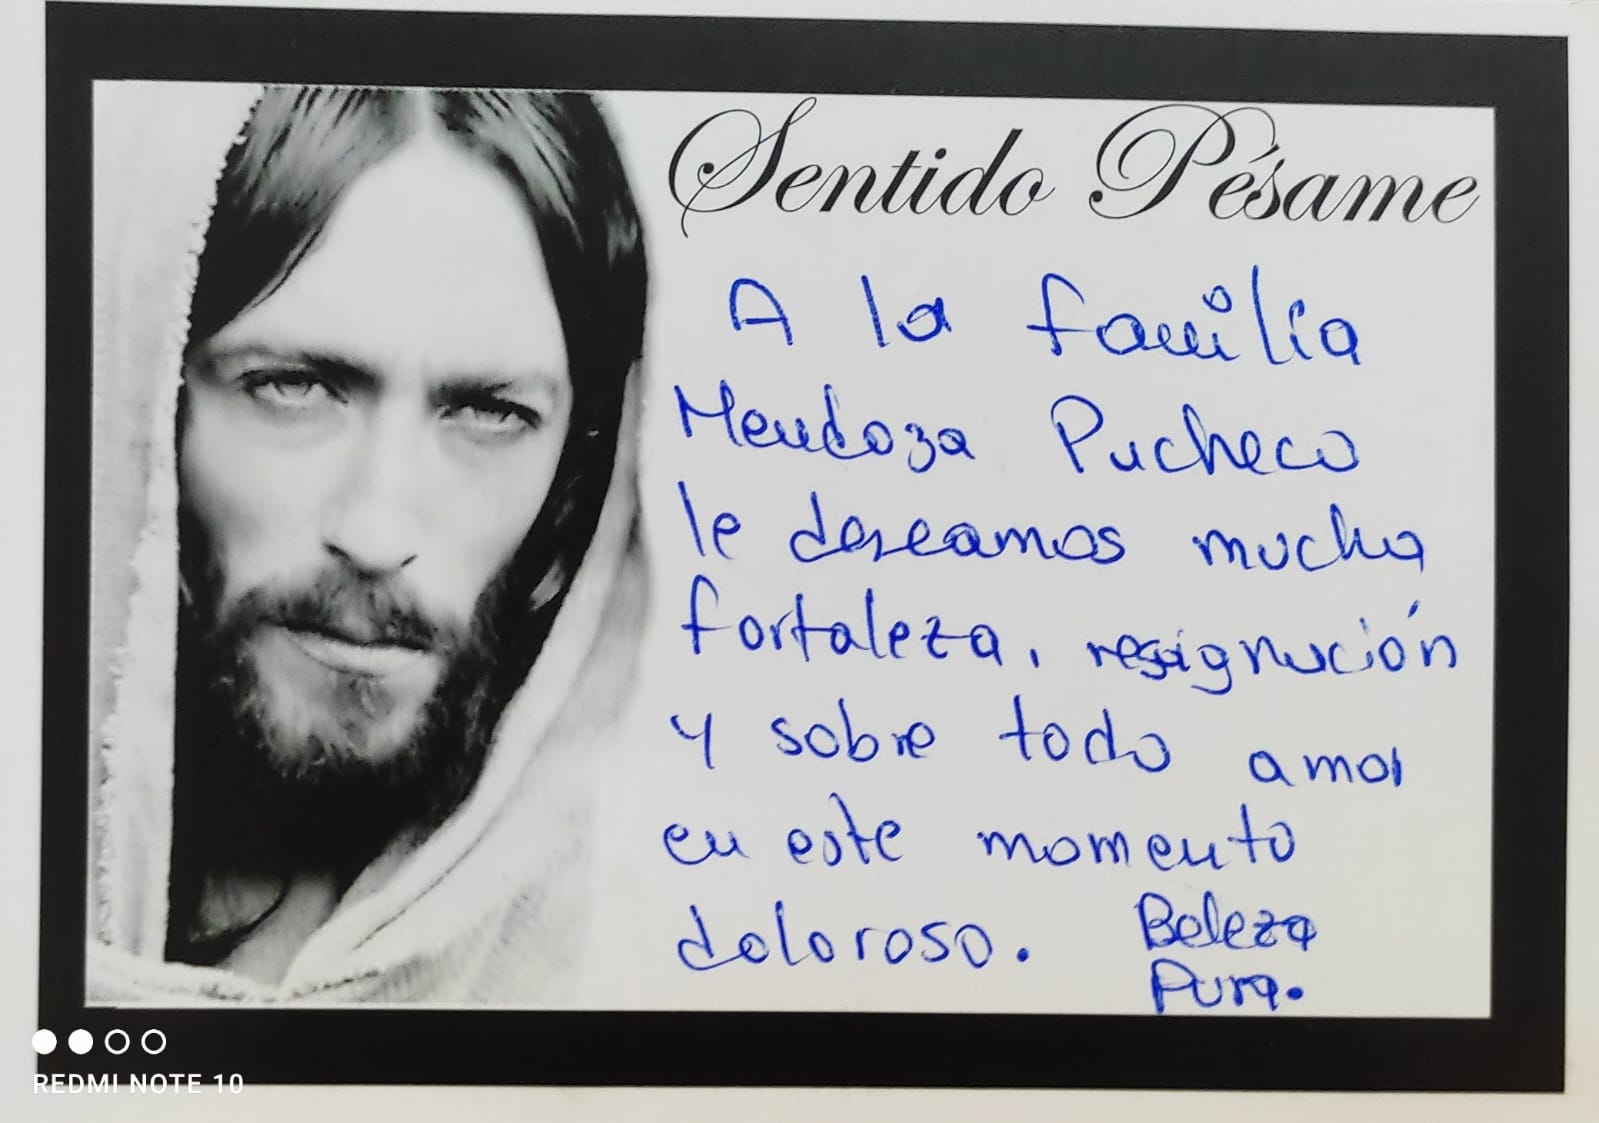 Sentido Pésame
A la familia
Mendoza Pacheco
le deseamos mucha
fortaleza, resignación
y sobre todo amor
en este momento
doloroso. Beleza
Pura.
REDMI NOTE 10